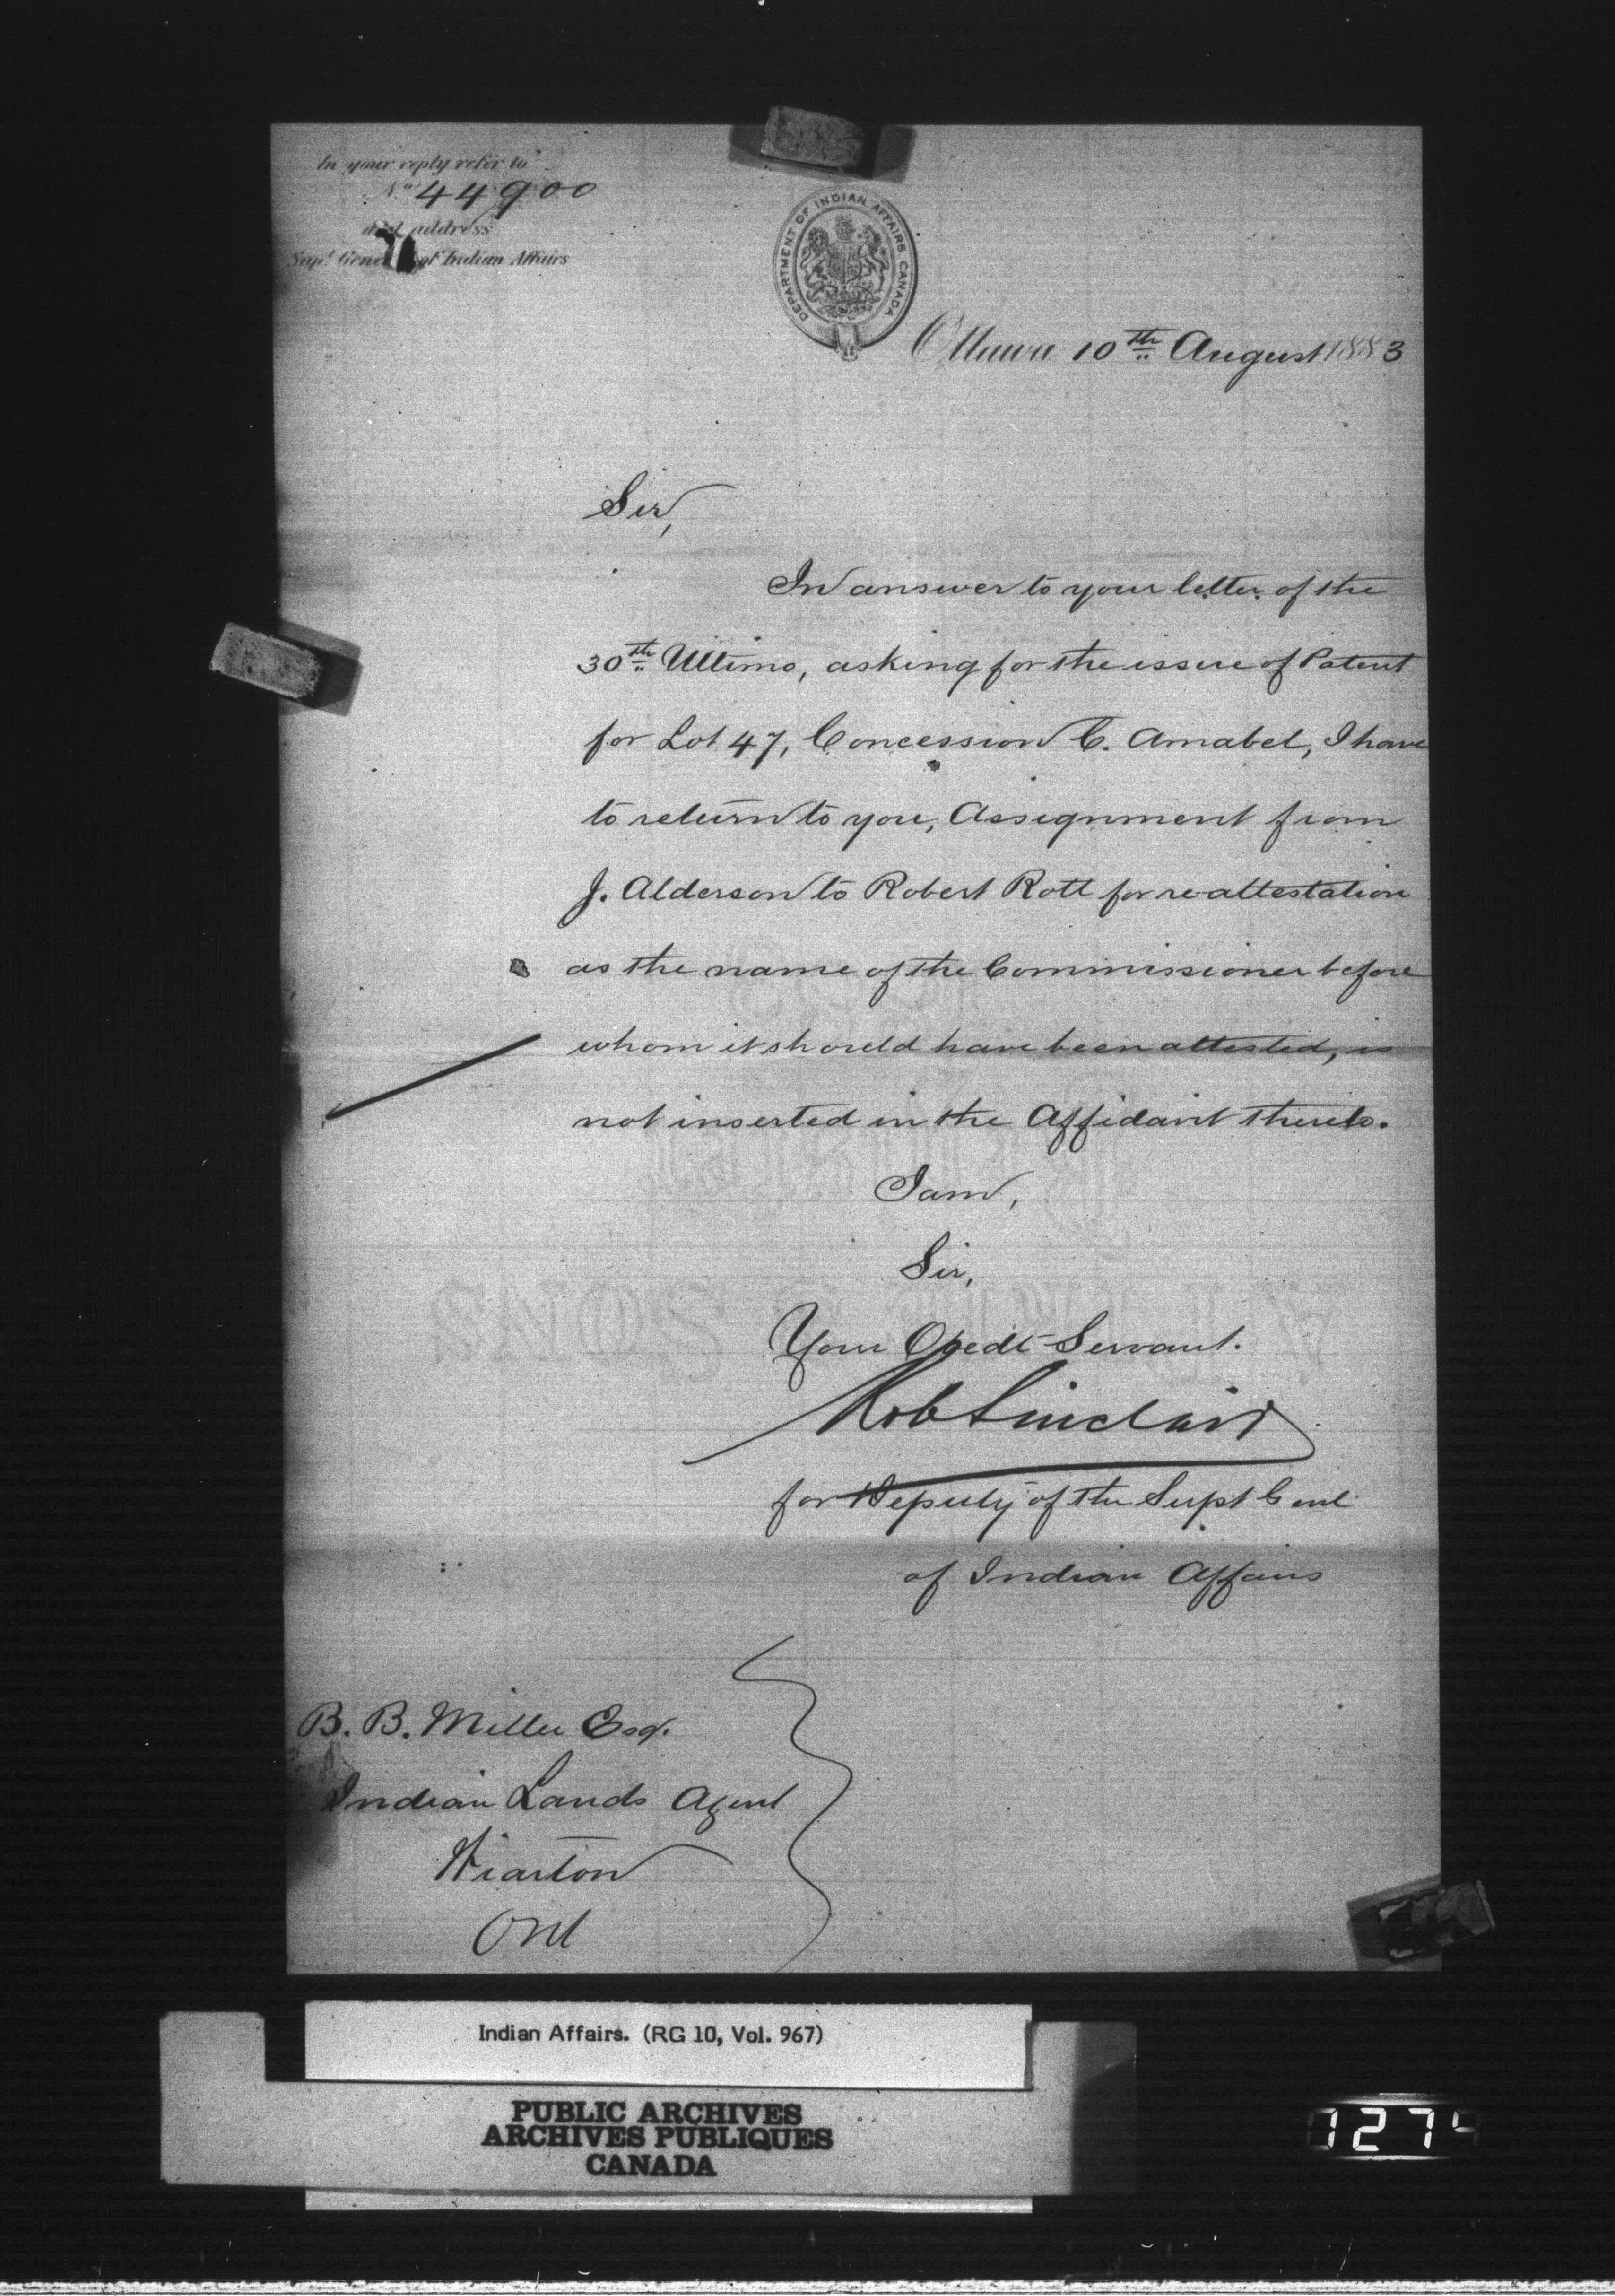 In your reply refer to
No. 44900
and address
Supt. General of Indian Affairs
DEPARTMENT OF INDIAN AFFAIRS CANADA
Ottawa 10th August 1883
Sir,
In answer to your letter of the
30th Ultimo, asking for the issue of Patent
for Lot 47, Concession C. Amabel, I have
to return to you, Assignment from
J. Alderson to Robert Rott for re-attestation
as the name of the Commissioner before
whom it should have been attested, is
not inserted in the Affidavit thereto.
I am,
Sir,
Your Obedt Servant.
Rob Sinclair
for Deputy of the Supt Genl
of Indian Affairs
B. B. Miller Esq.
Indian Lands Agent
Wiarton
Ont
Indian Affairs. (RG 10, Vol. 967)
PUBLIC ARCHIVES
ARCHIVES PUBLIQUES
CANADA